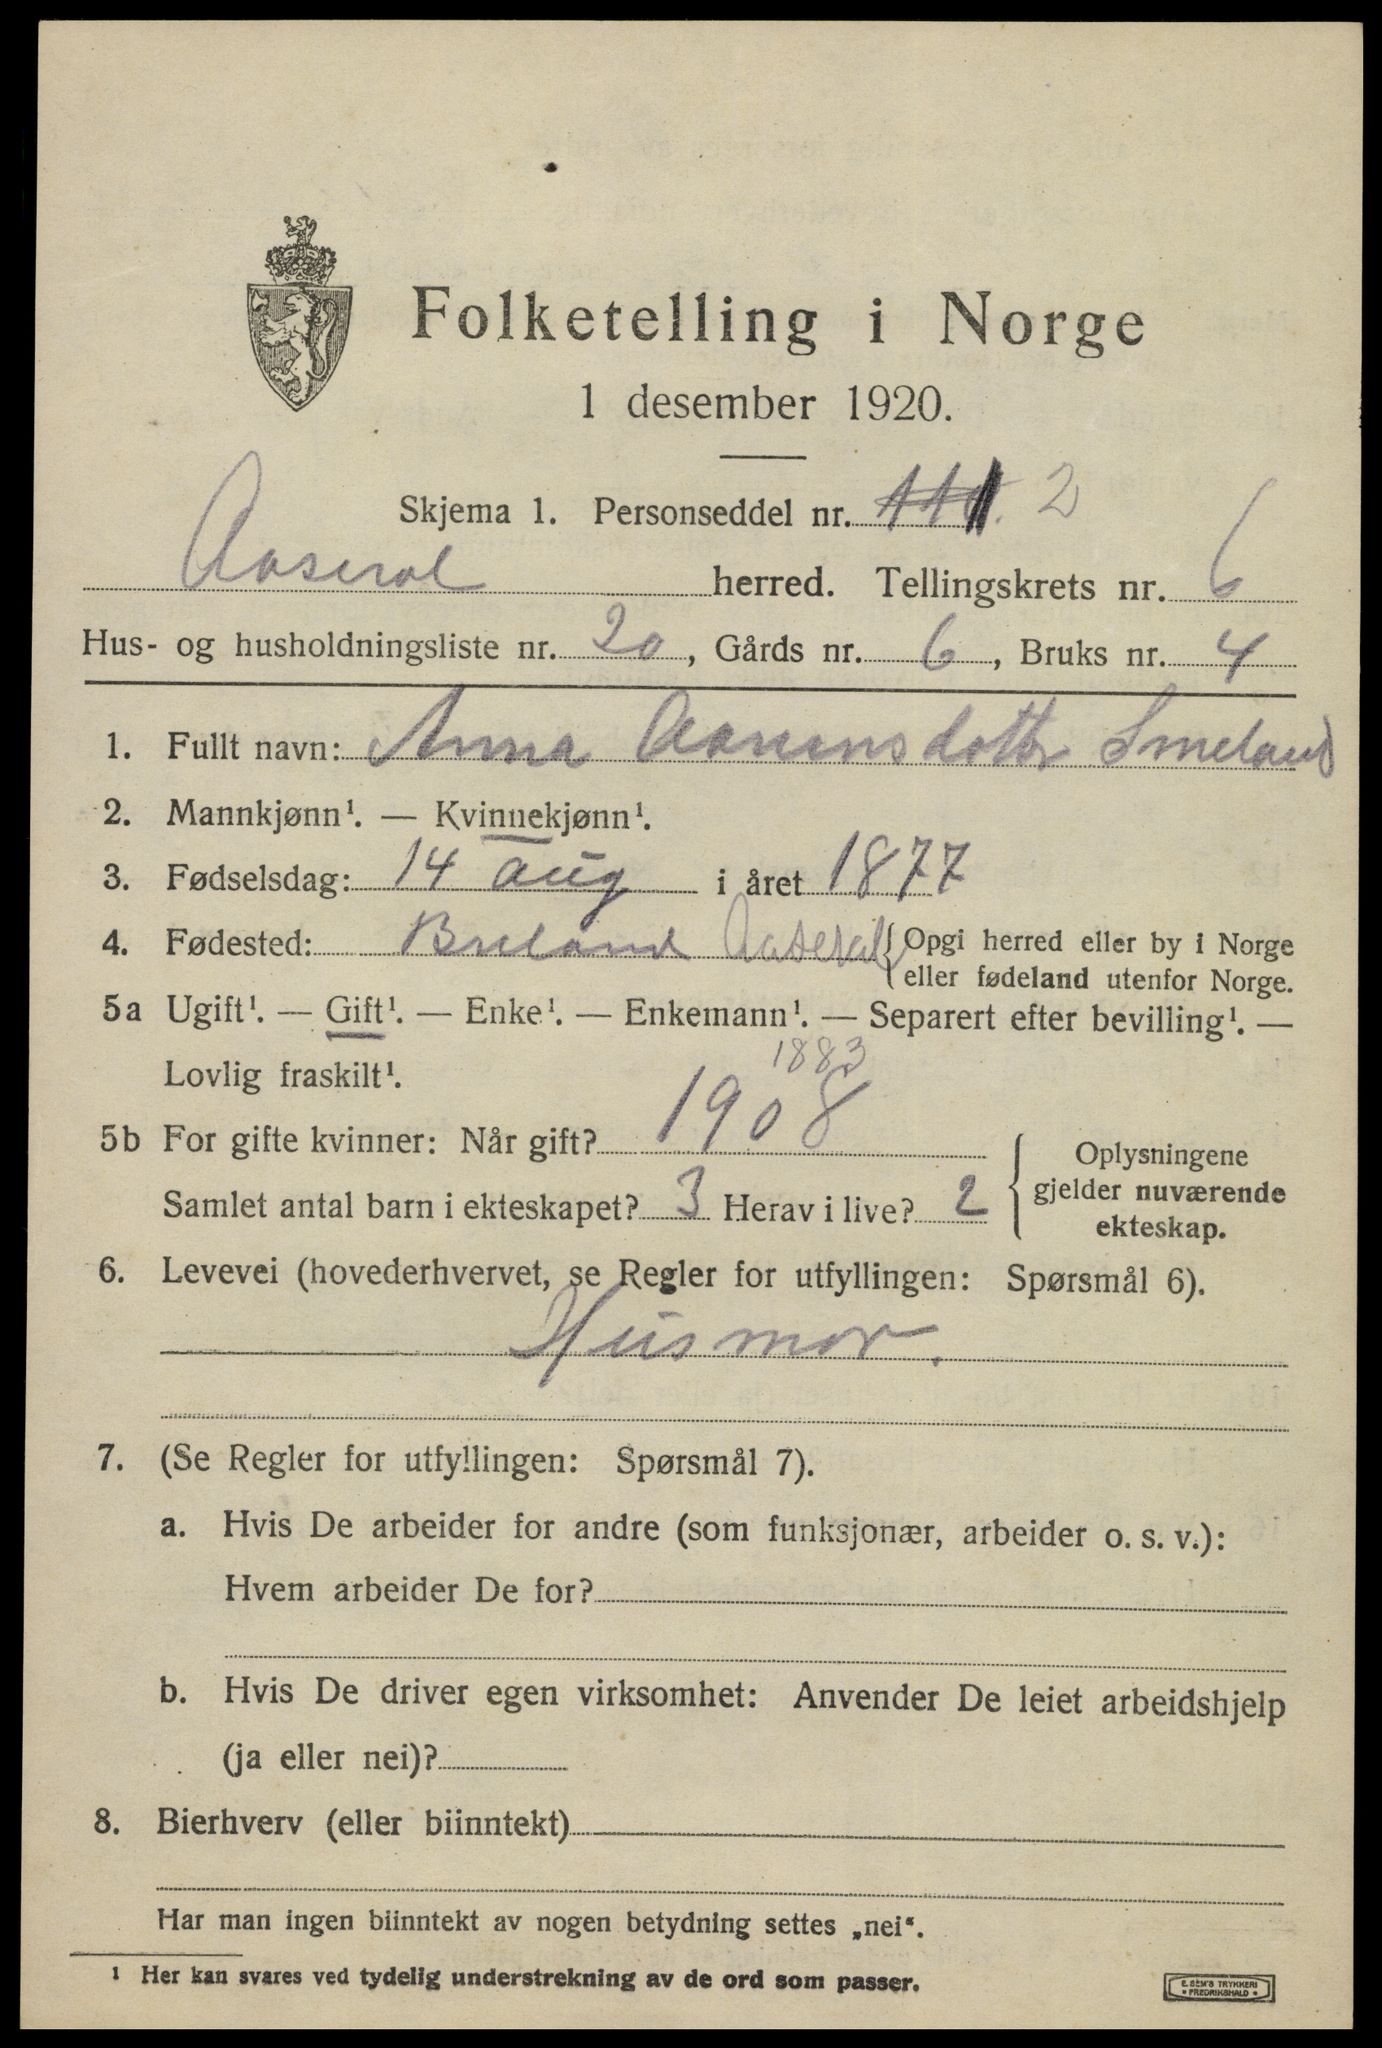 Folketelling i Norge
1 desember 1920.
Skjema 1. Personseddel nr. 2
Aaseral herred. Tellingskrets nr. 6
Hus- og husholdningsliste nr. 20, Gårds nr. 6, Bruks nr. 4
1. Fullt navn: Anna Aanensdotter Smeland
2. Mannkjønn¹. — Kvinnekjønn¹.
3. Fødselsdag: 14 aug i året 1877
4. Fødested: Breland Aaseral { Opgi herred eller by i Norge
eller fødeland utenfor Norge.
5a Ugift¹. — Gift¹. — Enke¹. — Enkemann¹. — Separert efter bevilling¹. —
Lovlig fraskilt¹.
1883
5b For gifte kvinner: Når gift? 1908
Samlet antal barn i ekteskapet? 3 Herav i live? 2
Oplysningene
gjelder nuværende
ekteskap.
6. Levevei (hovederhvervet, se Regler for utfyllingen: Spørsmål 6).
Husmor.
7. (Se Regler for utfyllingen: Spørsmål 7).
a. Hvis De arbeider for andre (som funksjonær, arbeider o. s. v.):
Hvem arbeider De for?
b. Hvis De driver egen virksomhet: Anvender De leiet arbeidshjelp
(ja eller nei)?
8. Bierhverv (eller biinntekt)
Har man ingen biinntekt av nogen betydning settes „nei“.
¹ Her kan svares ved tydelig understrekning av de ord som passer.
E. SEM'S TRYKKERI
• FREDRIKSHALD •